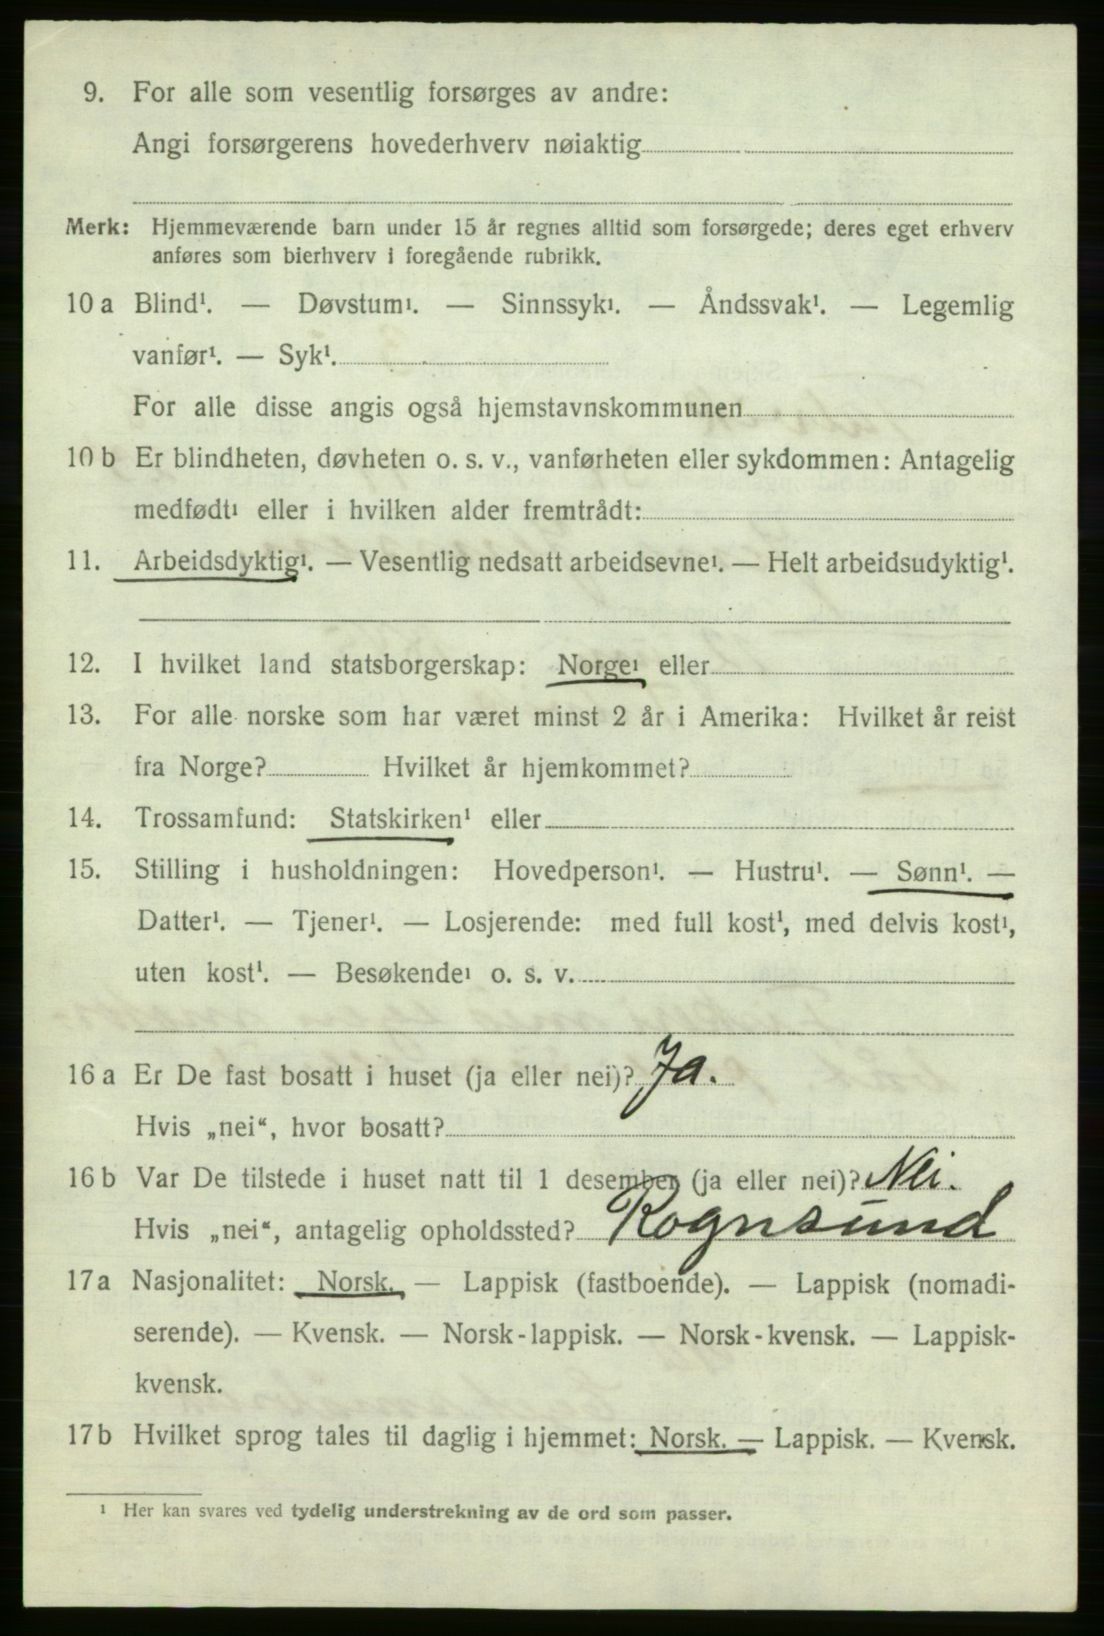 9. For alle som vesentlig forsørges av andre:
Angi forsørgerens hovederhverv nøiaktig
Merk: Hjemmeværende barn under 15 år regnes alltid som forsørgede; deres eget erhverv
anføres som bierhverv i foregående rubrikk.
10 a Blind¹. — Døvstum¹. — Sinnssyk¹. — Åndssvak¹. — Legemlig
vanfør¹. — Syk¹.
For alle disse angis også hjemstavnskommunen
10 b Er blindheten, døvheten o. s. v., vanførheten eller sykdommen: Antagelig
medfødt¹ eller i hvilken alder fremtrådt:
11. Arbeidsdyktig¹. — Vesentlig nedsatt arbeidsevne¹. — Helt arbeidsudyktig¹.
12. I hvilket land statsborgerskap: Norge¹ eller
13. For alle norske som har været minst 2 år i Amerika: Hvilket år reist
fra Norge? Hvilket år hjemkommet?
14. Trossamfund: Statskirken¹ eller
15. Stilling i husholdningen: Hovedperson¹. — Hustru¹. — Sønn¹. —
Datter¹. — Tjener¹. — Losjerende: med full kost¹, med delvis kost¹,
uten kost¹. — Besøkende¹ o. s. v.
16 a Er De fast bosatt i huset (ja eller nei)? Ja.
Hvis „nei“, hvor bosatt?
16 b Var De tilstede i huset natt til 1 desember (ja eller nei)? Nei.
Hvis „nei“, antagelig opholdssted? Rognsund
17 a Nasjonalitet: Norsk. — Lappisk (fastboende). — Lappisk (nomadi-
serende). — Kvensk. — Norsk-lappisk. — Norsk-kvensk. — Lappisk-
kvensk.
17 b Hvilket sprog tales til daglig i hjemmet: Norsk. — Lappisk. — Kvensk.
¹ Her kan svares ved tydelig understrekning av de ord som passer.